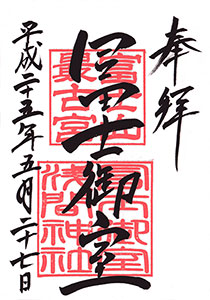 奉拝
富士山
最古宮
冨士御室
冨士御室
浅間神社
平成二十五年五月二十七日